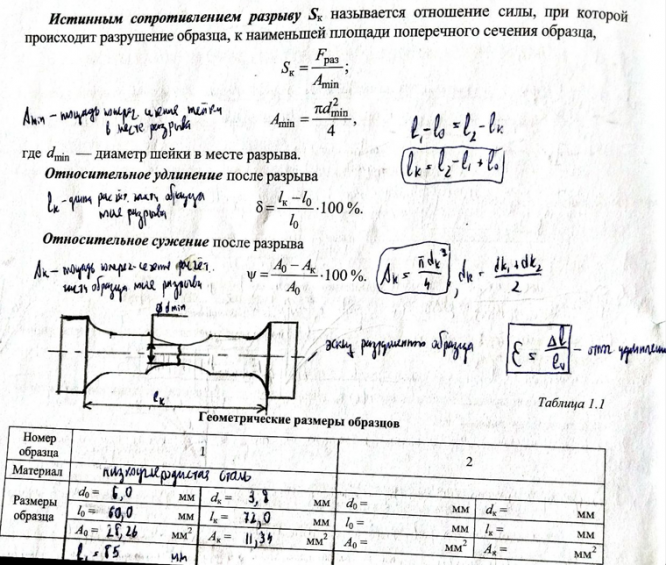 Истинным сопротивлением разрыву Sк называется отношение силы, при которой
происходит разрушение образца, к наименьшей площади поперечного сечения образца,
Sк = Fраз / Amin;
Amin – площадь попереч. сечения шейки
в месте разрыва
Amin = πd²min / 4,
l₁ - l₀ = l₂ - lк
lк = l₂ - l₁ + l₀
где dmin — диаметр шейки в месте разрыва.
Относительное удлинение после разрыва
lк - длина расчёт. часть образца
после разрыва
δ = (lк – l₀) / l₀ · 100 %.
Относительное сужение после разрыва
Aк - площадь попереч. сечения расчёт.
часть образца после разрыва
ψ = (A₀ – Aк) / A₀ · 100 %.
Aк = πdк² / 4, dк = (dк₁ + dк₂) / 2
φ dmin
эскиз разрушенного образца
ε = Δl / l₀ – отн. удлинение
lк
Таблица 1.1
Геометрические размеры образцов
Номер образца 1 2
Материал низкоуглеродистая сталь
Размеры образца
d₀ = 6,0 мм dк = 3,8 мм d₀ = мм dк = мм
l₀ = 60,0 мм lк = 72,0 мм l₀ = мм lк = мм
A₀ = 28,26 мм² Aк = 11,34 мм² A₀ = мм² Aк = мм²
l₁ = 85 мм